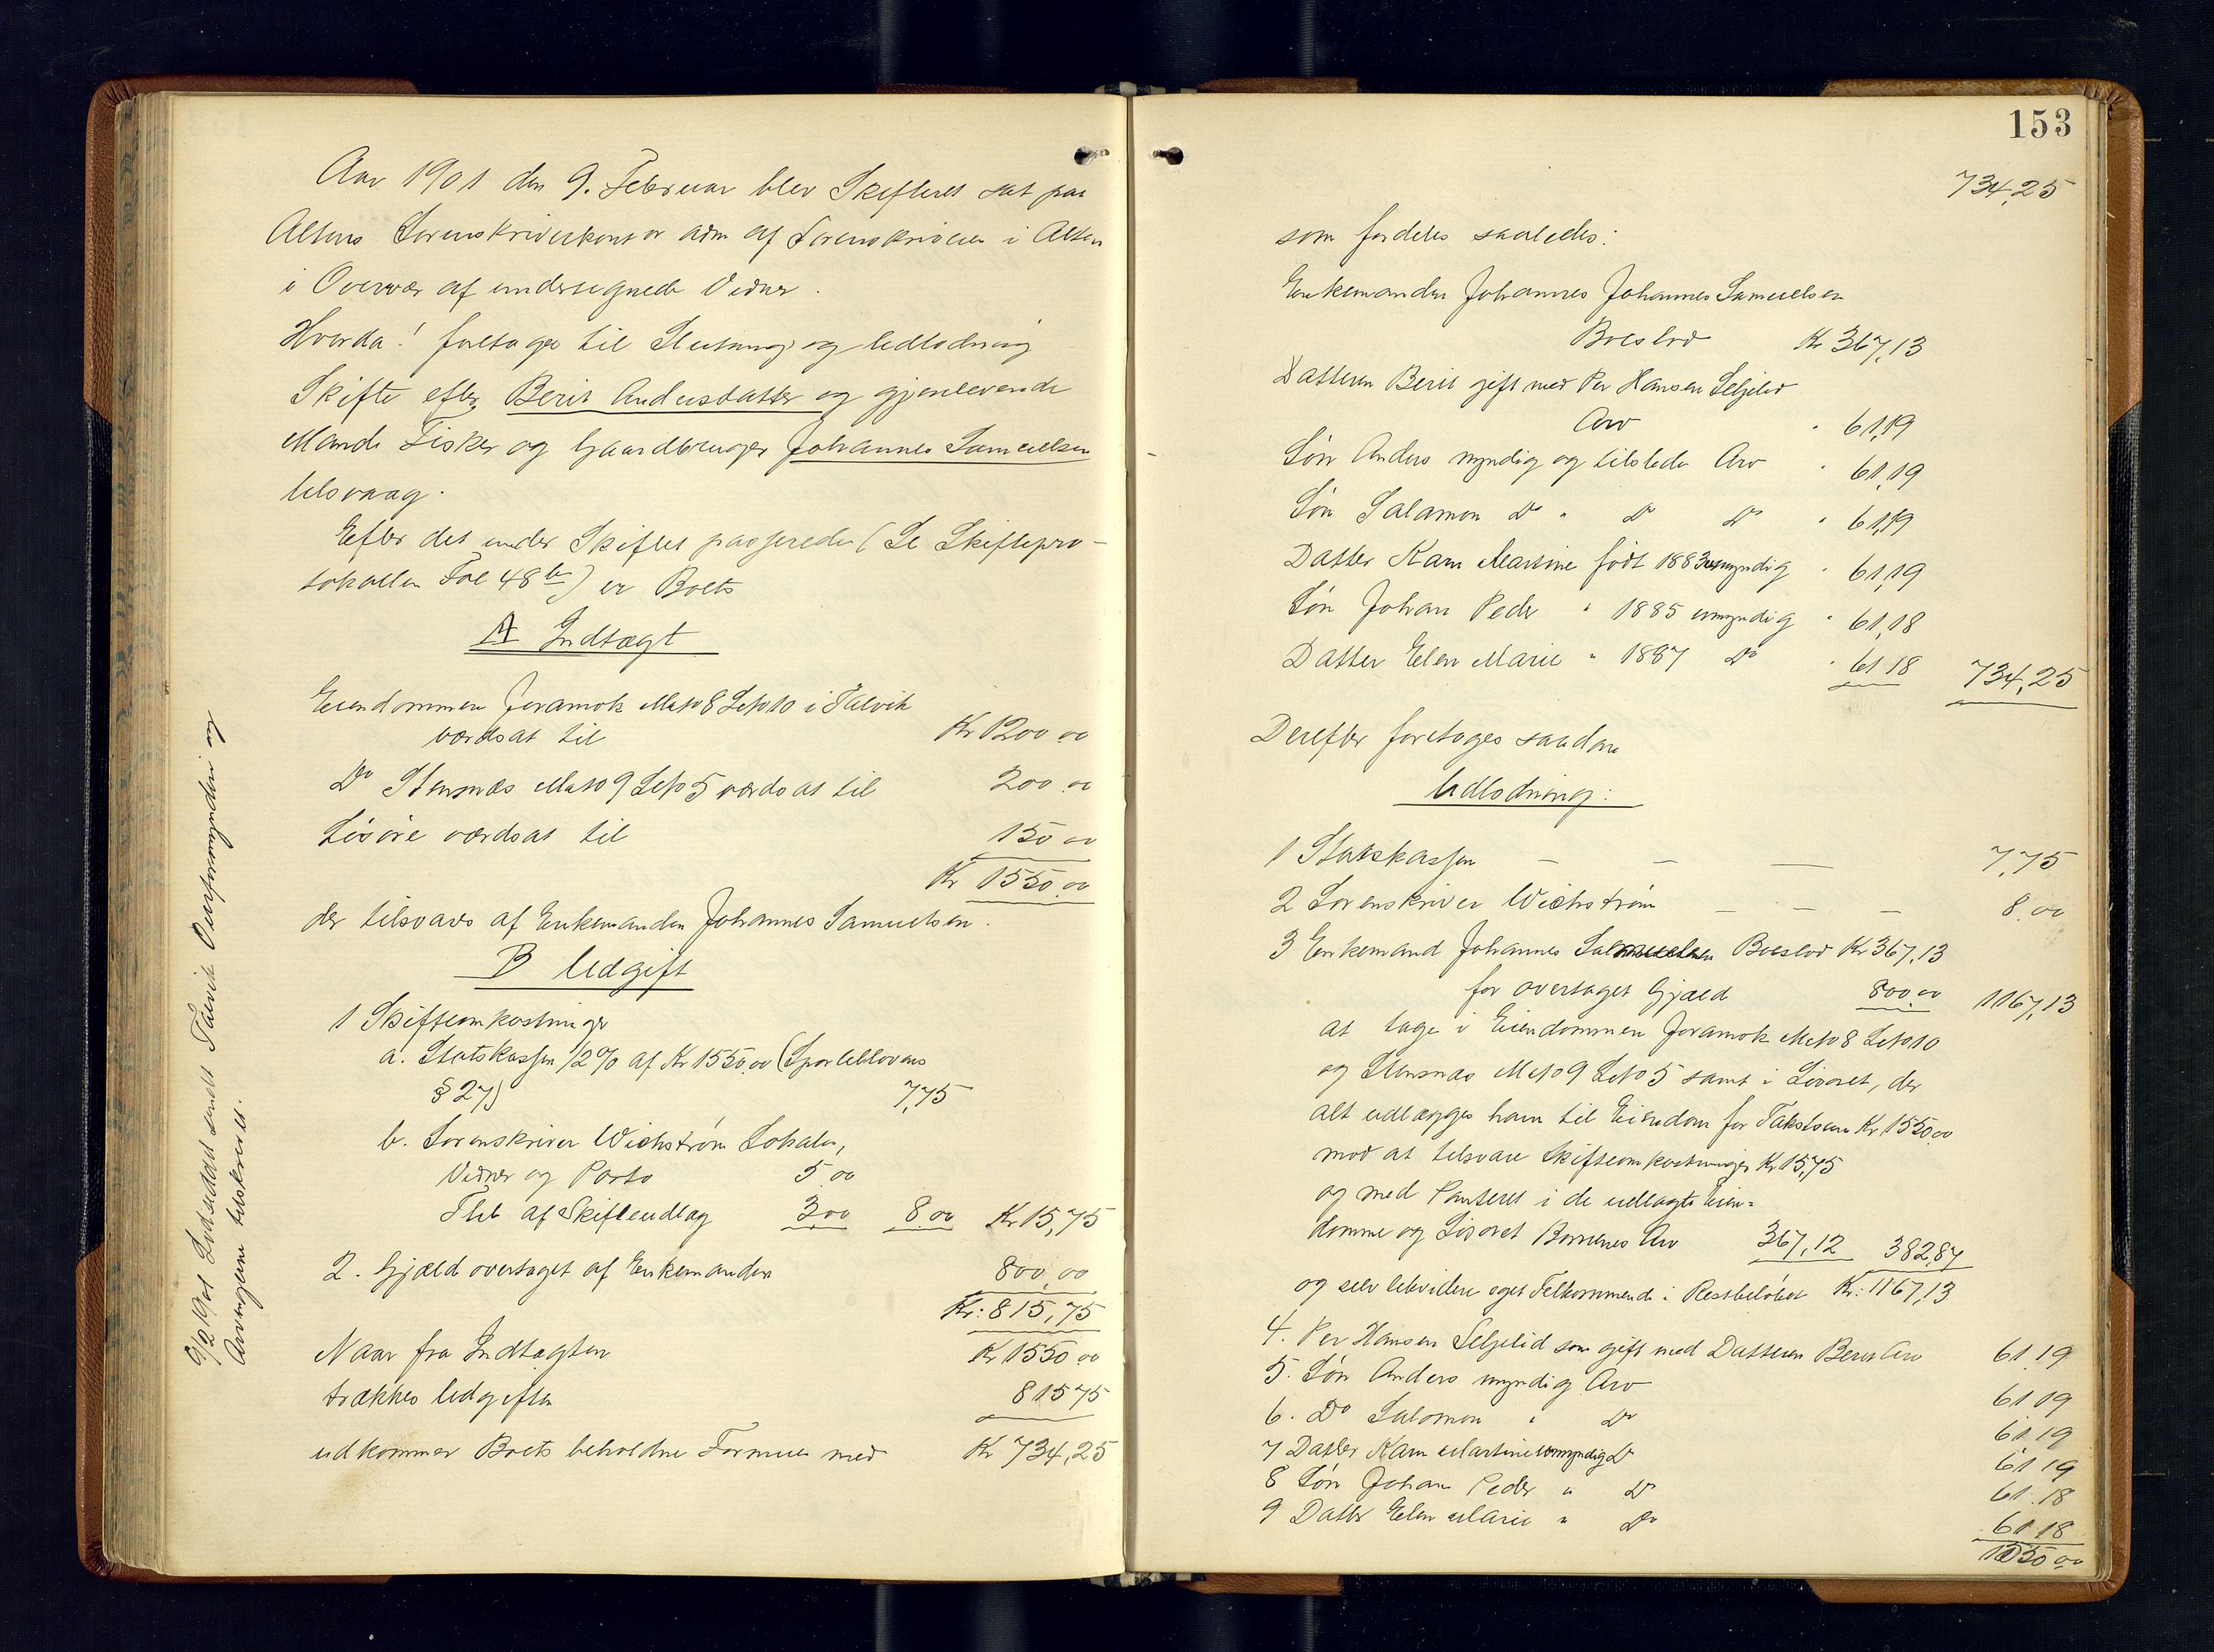 Aar 1901 den 9. Februar blev Skifteret sat paa
Altens Sorenskriverkontor adm af Sorenskriveren i Alten
i Overvær af undersignede Vidner.
Hvorda! foretoges til Slutning og Udlodning
Skifte efter Berit Andersdatter og gjenlevende
Mand Fisker og Gaardbruger Johannes Samuelsen
Ulsvaag.
Efter det under Skiftet passerede (Se Skiftepro-
tokollen Fol 48 b) er Boets
A Indtægt
Eiendommen Joramok Mno 8 Lno 10 i Talvik
værdsat til Kr 1200.00
Do Stensnæs Mno 9 Lno 5 værdsat til 200.00
Løsøre værdsat til 150.00
Kr 1550.00
der tilsvares af Enkemanden Johannes Samuelsen.
B Udgift
1 Skifteomkostninger
a. Statskassen 1/2% af Kr 1550.00 (Sportellovens
§ 27) 7,75
b. Sorenskriver Wichstrøm Lokale,
Vidner og Porto 5.00
Flb af Skifteudlæg 3,00 8.00 Kr 15,75
2. Gjæld overtaget af Enkemanden 800.00
Kr: 815,75
Naar fra Indtægten Kr 1550.00
trækkes Udgiften 815 75
udkommer Boets beholdne Formue med Kr 734,25
9/2 1901 Lodseddel sendt Talvik Overformynderi og
Arvingerne tilskrevet.
153
734,25
som fordeles saaledes:
Enkemanden Johannes Johannes Samuelsen
Boeslod Kr 367,13
Datteren Berit gift med Per Hansen Seljelid
Arv " 61,19
Søn Anders myndig og tilstede Arv " 61,19
Søn Salamon Do " Do Do " 61,19
Datter Karn Martine født 1883 umyndig " 61,19
Søn Johan Peder " 1885 umyndig " 61,18
Datter Elen Marie " 1887 Do " 61 18 734,25
Derefter foretoges saadan
Udlodning:
1 Statskassen — — — 7,75
2 Sorenskriver Wichstrøm — — — 8.00
3 Enkemand Johannes Samuelsen Boeslod Kr 367,13
for overtaget Gjæld 800.00 1167,13
at tage i Eiendommen Joramok Mno 8 Lno 10
og Stensnæs Mno 9 Lno 5 samt i Løsøret, der
alt udlægges ham til Eiendom for Taksten Kr 1550.00
mod at tilsvare Skifteomkostninger Kr 15,75
og med Panteret i de udlagte Eien=
domme og Løsøret Børnenes Arv 367,12 382,87
og selv likvidere eget Tilkommende i Restbeløbet Kr: 1167,13
4. Per Hansen Seljelid som gift med Datteren Berit Arv 61.19
5. Søn Anders myndig Arv 61 19
6. Do Salomon " Do 61.19
7 Datter Karn Martine umyndig Do 61 19
8 Søn Johan Peder " Do 61.18
9 Datter Elen Marie " Do 61 18
1550 00